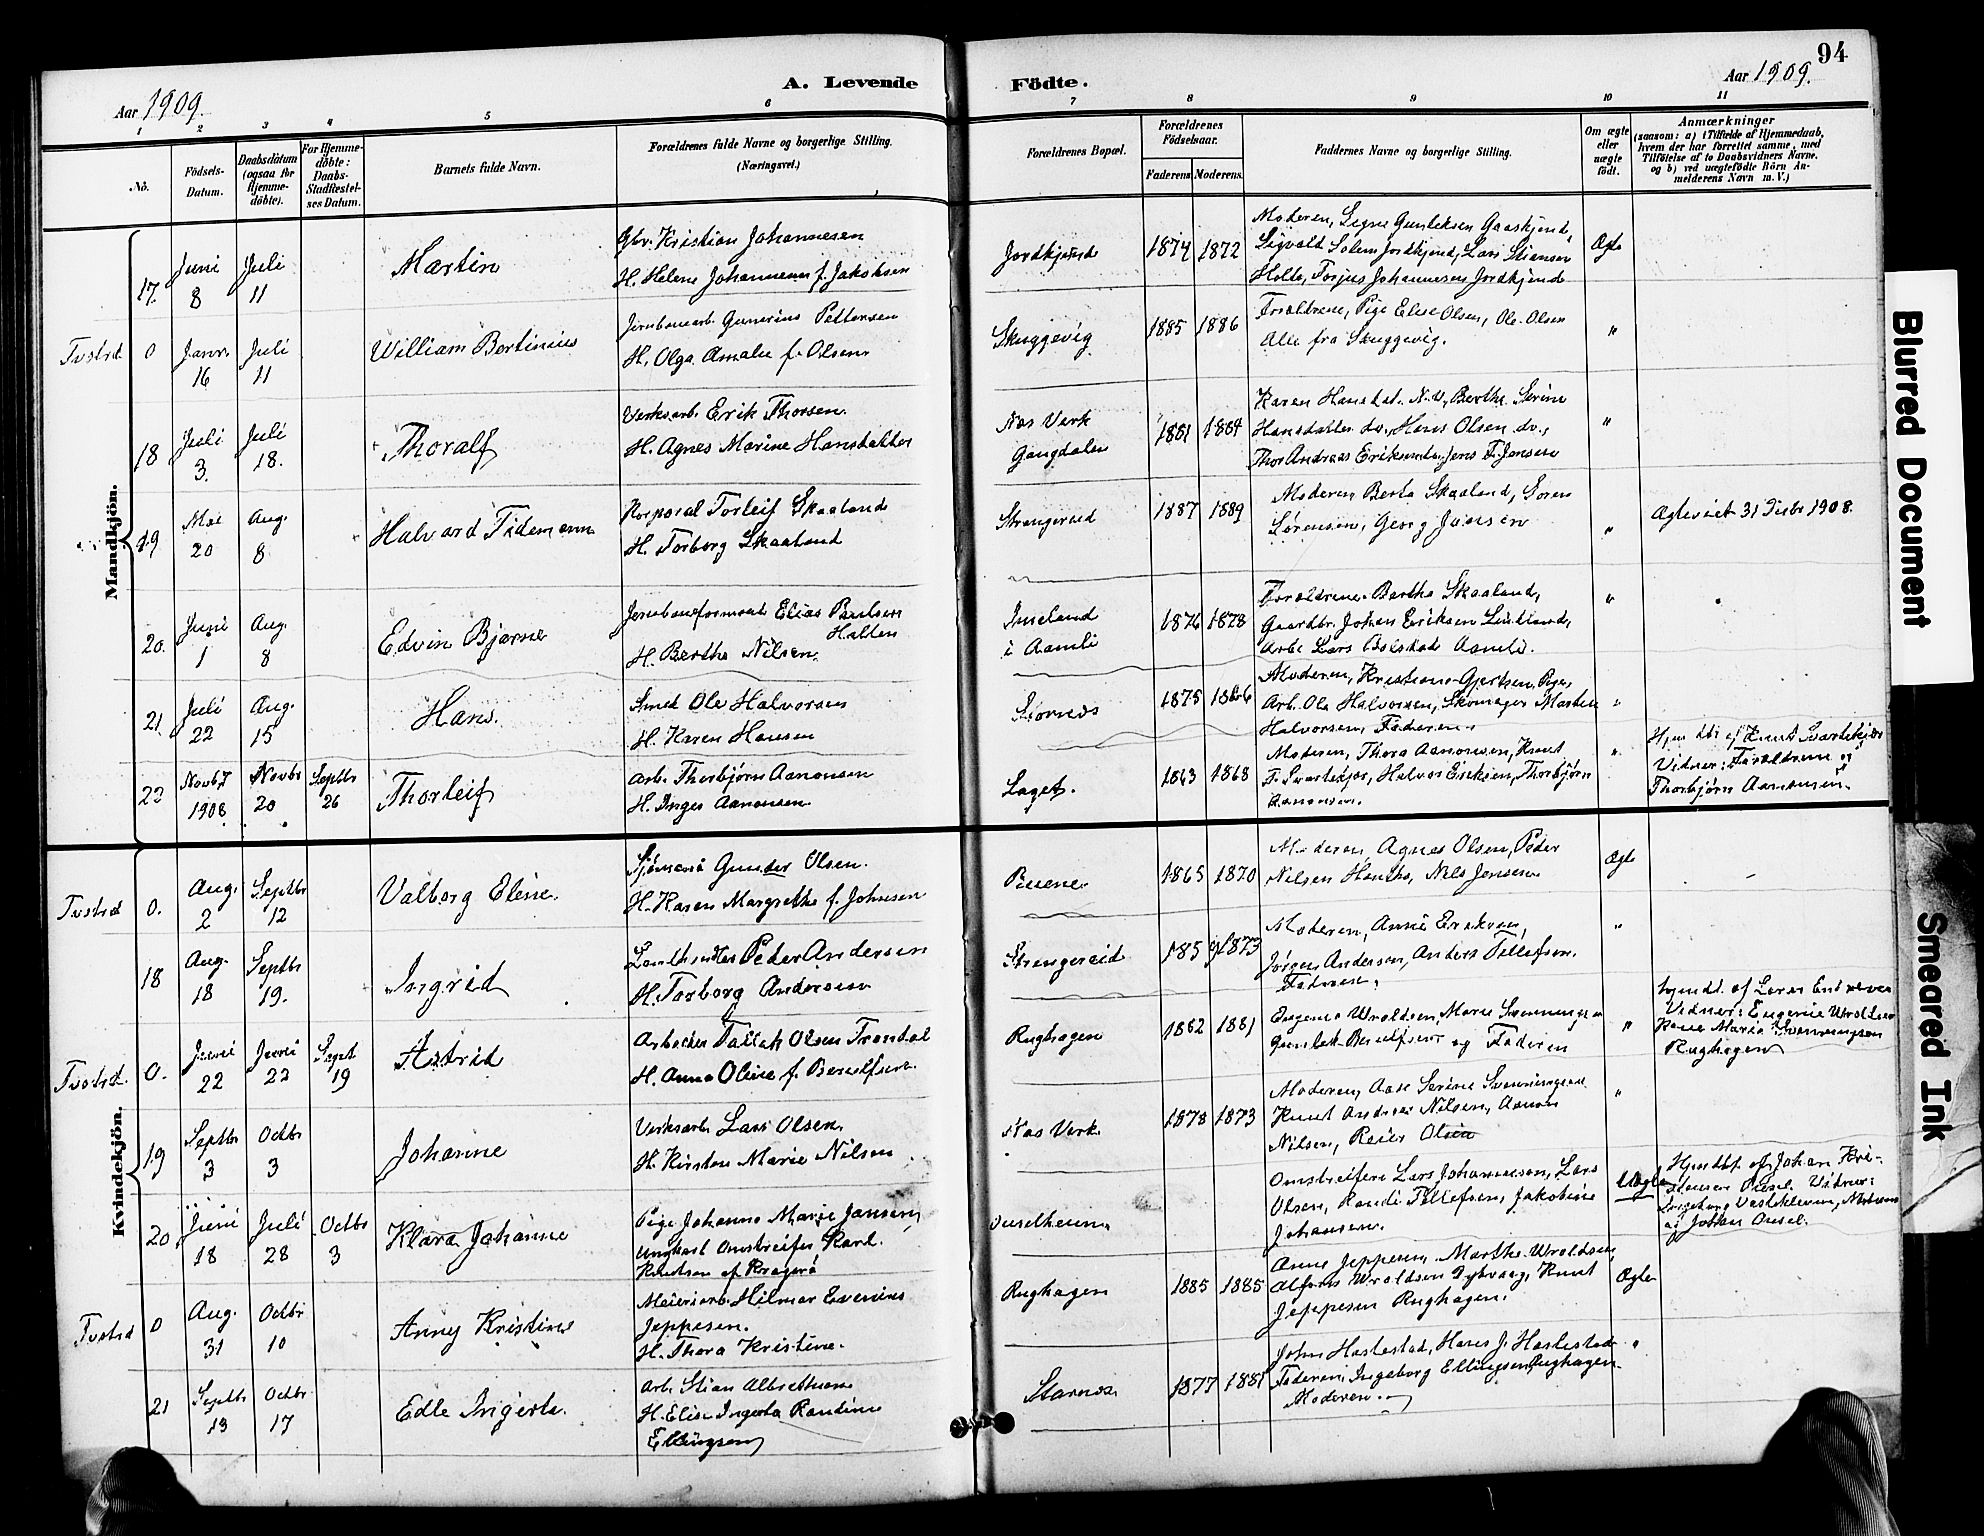 94
Aar 1909.
A. Levende
Födte.
Aar 1909.
1 2 3 4 5 6 7 8 9 10 11
No.
Födsels-
Datum.
Daabsdatum
(ogsaa for
Hjemme-
döbte).
For Hjemme-
döbte:
Daabs-
Stadfæstel-
ses Datum.
Barnets fulde Navn.
Forældrenes fulde Navne og borgerlige Stilling.
(Næringsvei.)
Forældrenes Bopæl.
Forældrenes
Födselsaar.
Faderens. Moderens.
Faddernes Navne og borgerlige Stilling.
Om ægte
eller
uægte
födt.
Anmærkninger
(saasom: a) i Tilfælde af Hjemmedaab,
hvem der har forrettet samme, med
Tilföielse af to Daabsvidners Navne,
og b) ved uægtefödte Börn An-
melderens Navn m. V.)
Mandkjön.
17.
Juni
8
Juli
11
Martin
Gbr. Kristian Johannesen
H. Helene Johannesen f. Jakobsen
Jordkjend
1874 1872
Moderen, Signe Gunteksen Gaaskjend,
Sigvald Solem Jordkjend, Lars Stiansen
Holte, Torjus Johannesen Jordkjend
Ægte
Tvstrd
0
Janr.
16
Juli
11
William Bertinius
Jernbanearb. Gunerius Pettersen
H. Olga Amalie f. Olsen
Skuggevig
1885 1886
Forældrene, Pige Elise Olsen, Ole Olsen
Alle fra Skuggevig.
"
18
Juli
3.
Juli
18.
Thoralf
Verksarb. Erik Thorsen.
H. Agnes Marine Hansdatter
Nas Verk
Gangdalen
1881 1884
Karen Hansdat. N.V., Berthe Serine
Hansdatter do., Hans Olsen do.,
Thor Andreas Eriksen do., Jens F. Jensen
"
19
Mai
20
Aug.
8
Halvard Tidemann
Korporal Torleif Skaaland
H. Torborg Skaaland
Strengereid
1887 1889
Moderen Berta Skaaland, Soren
Sørensen, Georg Jansen
"
Ægteviet 31 Decbr 1908.
20.
Juni
1
Aug.
8
Edvin Bjarne
Jernbaneformand Elias Paulsen
Holten
H. Berthe Nilsen.
Imeland
i Aamli
1876 1878
Forældrene. Berthe Skaaland,
Gaardbr. Johan Eriksen
Arb. Lars Aamli.
"
21
Juli
22
Aug.
15
Hans.
Smed Ole Halvorsen
H. Karen Hansen
Stornes
1875
Moderen, Kristiane Gjertsen, Pige,
Arb. Ole Halvorsen, Skomager Morten
Halvorsen, Faderen.
"
22
Novb. 7
1908
Novbr
20
Septbr
26
Thorleif
Arb. Thorbjørn Aanonsen
H. Inger Aanonsen
Laget.
1863 1868
Moderen, Thora Aanonsen, Knut
T. Svartekjær, Halvor Eriksen, Thorbjørn
Aanonsen.
"
Hjemdbt af Knut Svartekjær
Vidner: Forældrene og
Thorbjørn Aanonsen.
Kvindekjön.
Tvstrd
0.
Aug.
2
Septbr
12
Valborg Eline.
Sjømand Gunder Olsen.
H. Karen Margrethe f. Johnsen
1865 1870
Moderen, Agnes Olsen, Peder
Nilsen Hantho, Nils Jensen
Ægte
18
Aug.
18
Septbr
19.
Ingrid
Landhandler Peder Andersen
H. Torborg Andersen
Strengereid
1859 1873
Moderen, Anne Eriksen,
Jørgen Andersen, Anders Tellefsen.
Faderen.
"
Tvstrd.
0.
Juni
22
Juni
22
Sept
19
Astrid
Arbeider Tallak Olsen Trondal
H. Anna Oline f. Berulfsen.
Rughagen
1882 1881
Eugenie Wroldsen, Marie Svenningsen
Gunlak Berulfsen og Faderen
"
hjemdt. af Laerer Endresen
Vidner: Eugenie Wroldsen
Marie Svenningsen
Rughagen
19
Septbr
3
Octbr
3
Johanne
Verksarb. Lars Olsen,
H. Kirsten Marie Nilsen
Nas Verk.
1878 1873
Moderen, Aase Serine Svenningsen
Knut Andreas Nilsen, Aanon
Nilsen, Reier Olsen
"
20
Juni
18
Juli
28
Octbr
3
Klara Johanne
Pige Johanne Marie Jansen,
Ungkarl Omstreifer Karl
Knutsen af Kragerø
Omstreifere Lars Johannesen, Lars
Olsen, Randi Tellefsen, Jakobine
Johansen.
Uægte
Hjemdbt. af Johan Kri-
stensen Ousel. Vidner:
Ingeborg Vestekleven, Moderen
af Johan Ousel.
Tvstrd
0
Aug.
31
Octbr
10
Anny Kristine
Meieriarb. Hilmar Evenius
Jeppesen.
H. Thora Kristine.
Rughagen
1885 1885
Anne Jeppesen, Marthe Wroldsen,
Alfons Wroldsen Dybvaag, Knut
Jeppesen Rughagen.
Ægte
21
Septbr
13
Octbr
17
Edle Ingerta.
Arb. Stian Albretsen
H. Elise Ingerta Randine
Ellingsen
Starnes
1877 1881
John Hastestad, Hans J. Hastestad
Faderen, Ingeborg Ellingsen Rughagen
Moderen.
"
Blurred Document
Smeared Ink